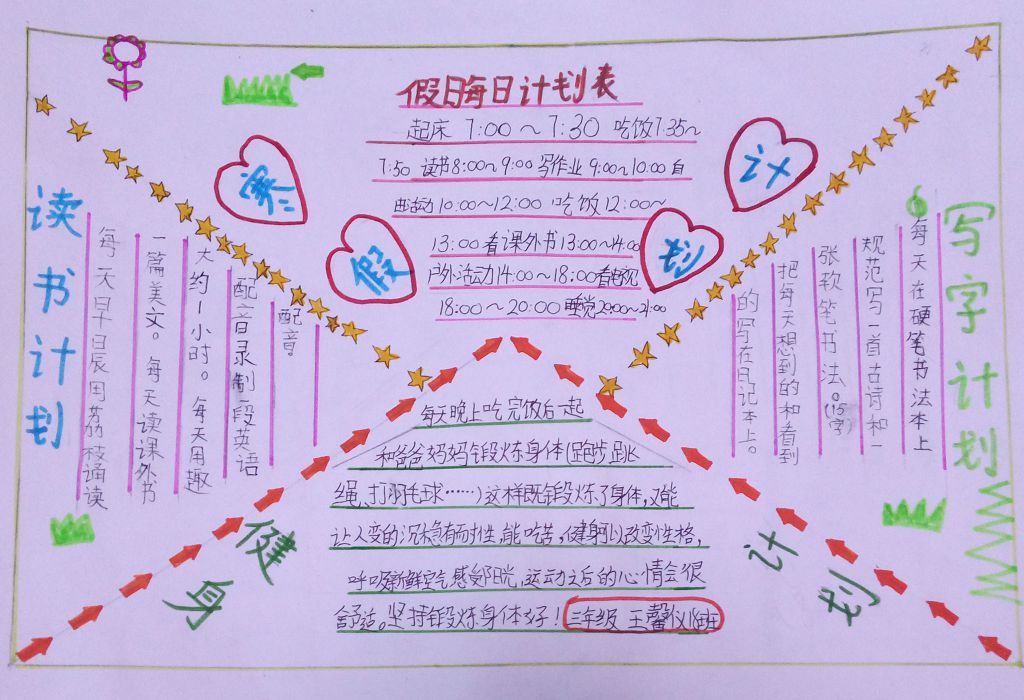 假日每日计划表
起床 7:00～7:30 吃饭7:35～
7:50 读书8:00～9:00写作业 9:00～10:00自
由活动10:00～12:00 吃饭12:00～
13:00看课外书13:00～14:00
户外活动14:00～18:00看电视
18:00～20:00睡觉20:00～21:00
寒
假
计
划
读书计划
每天早晨用荔枝诵读
一篇美文。每天读课外书
大约1小时。每天用趣
配音录制一段英语
配音。
写字计划
每天在硬笔书法本上
规范写一首古诗和一
张软笔书法。(15字)
把每天想到的和看到
的写在日记本上。
健身
计划
每天晚上吃完饭后一起
和爸爸妈妈锻炼身体(跑步、跳
绳、打羽毛球……)这样既锻炼了身体,又能
让人变的沉稳有耐性,能吃苦。健身可以改变性格,
呼吸新鲜空气感受阳光,运动之后的心情会很
舒适。坚持锻炼身体好!三年级 王馨仪 18班